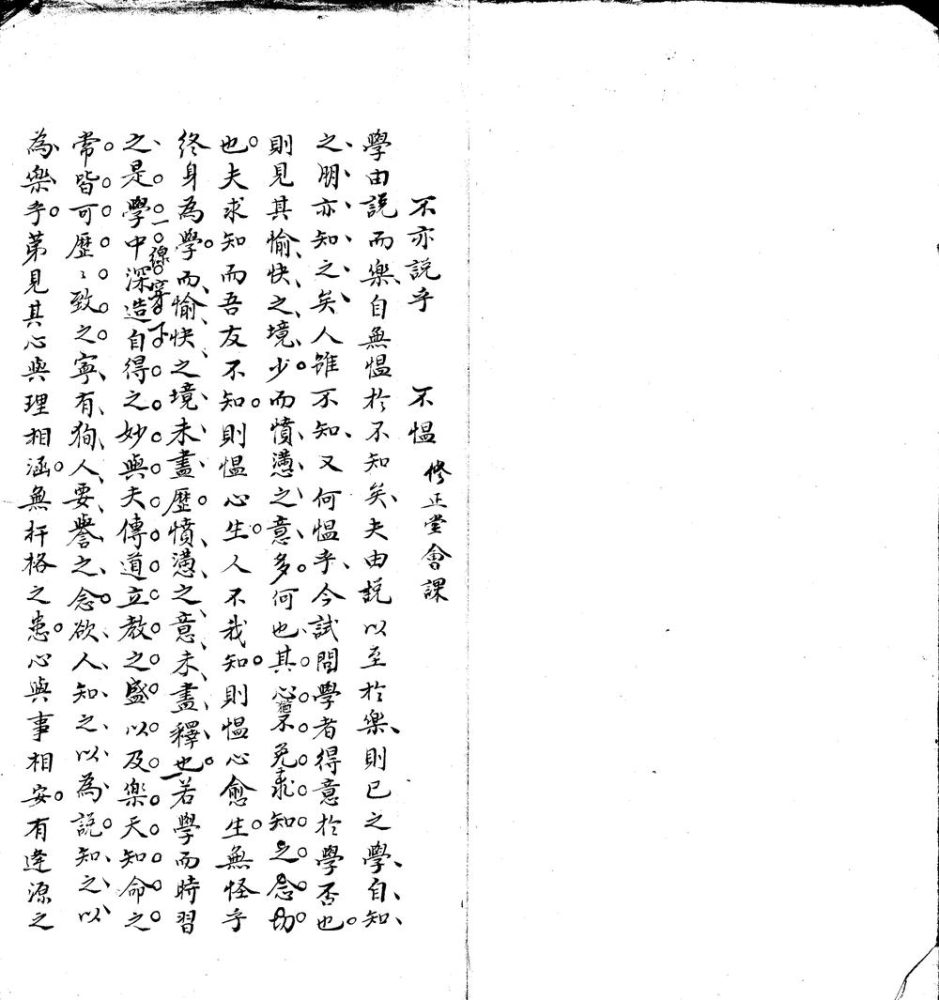 不亦説乎 不慍 修正堂會課
學由説而樂自無慍於不知矣夫由説以至於樂則已之學自知
之朋亦知之矣人雖不知又何慍乎今試問學者得意於學否也
則見其愉快之境少而憤懣之意多何也其心不免求知之念切
也夫求知而吾友不知則慍心生人不我知則慍心愈生無怪乎
終身為學而愉快之境未盡歷憤懣之意未盡釋也若學而時習
一線穿下
之是學中深造自得之妙與夫傳道立教之盛以及樂天知命之
常皆可歷歷致之寧有狥人要譽之念欲人知之以為説知之以
為樂乎第見其心與理相涵無扞格之患心與事相安有逢源之